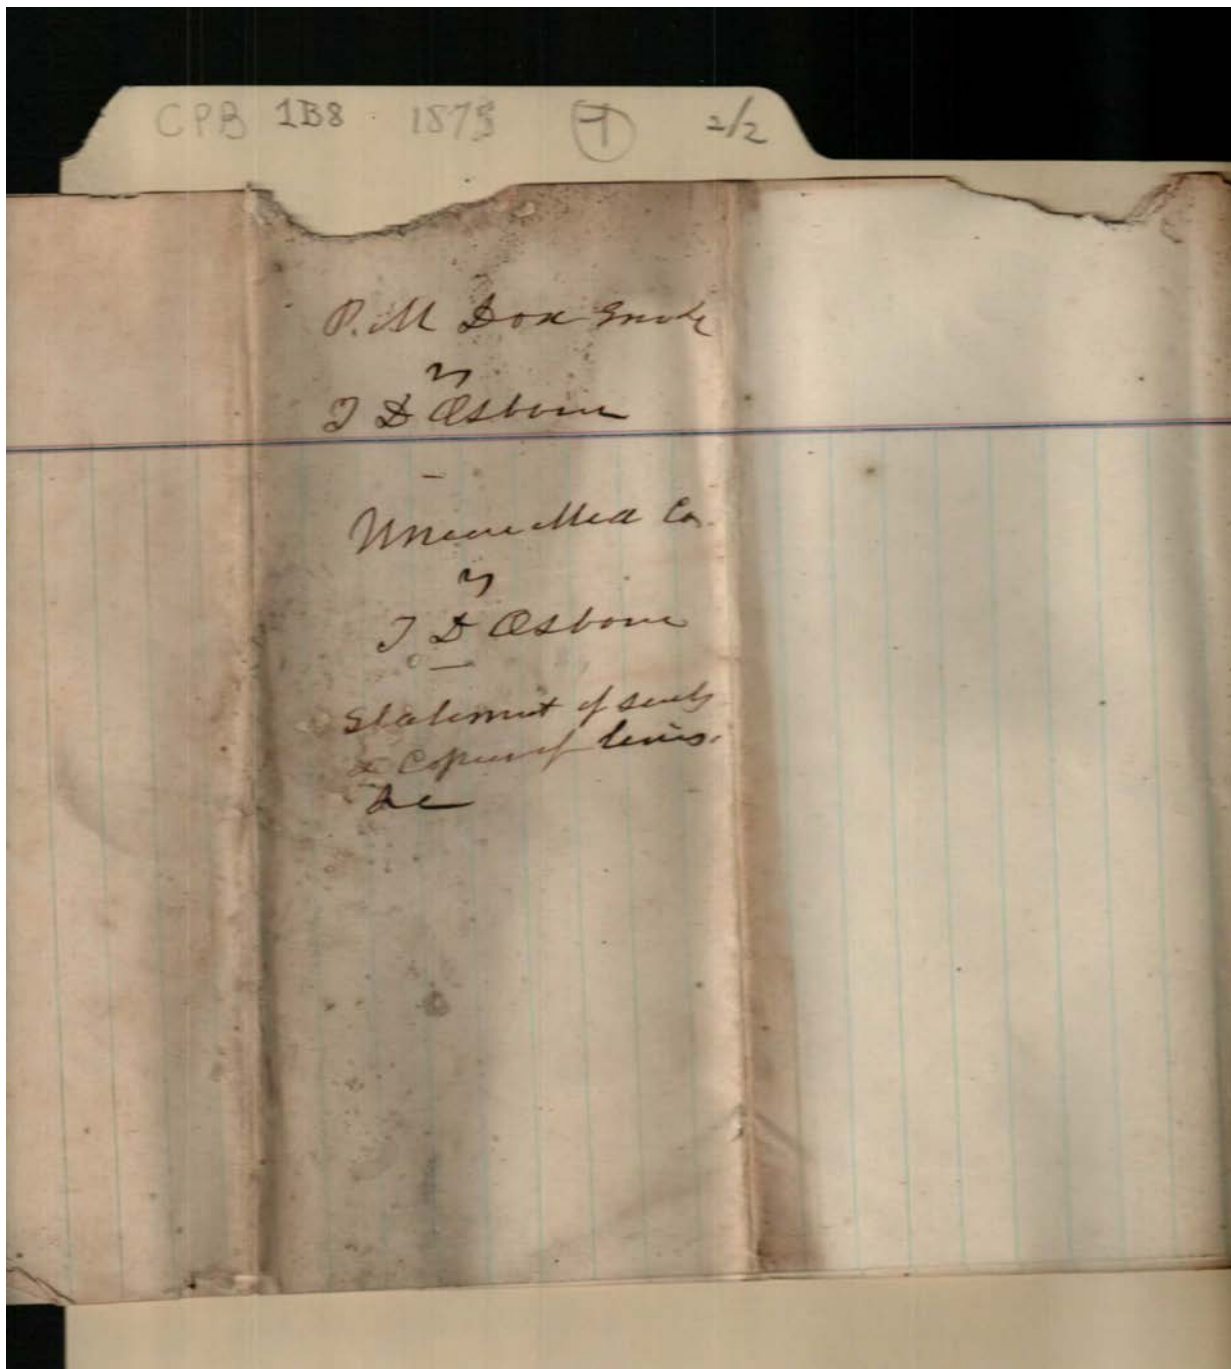 CPB 1B8 1875 T 2/2
P. M Dox
vs
T D Osborne
Med Co.
vs
T D Osborne
Statement of suits
& Copies of levies.
&c